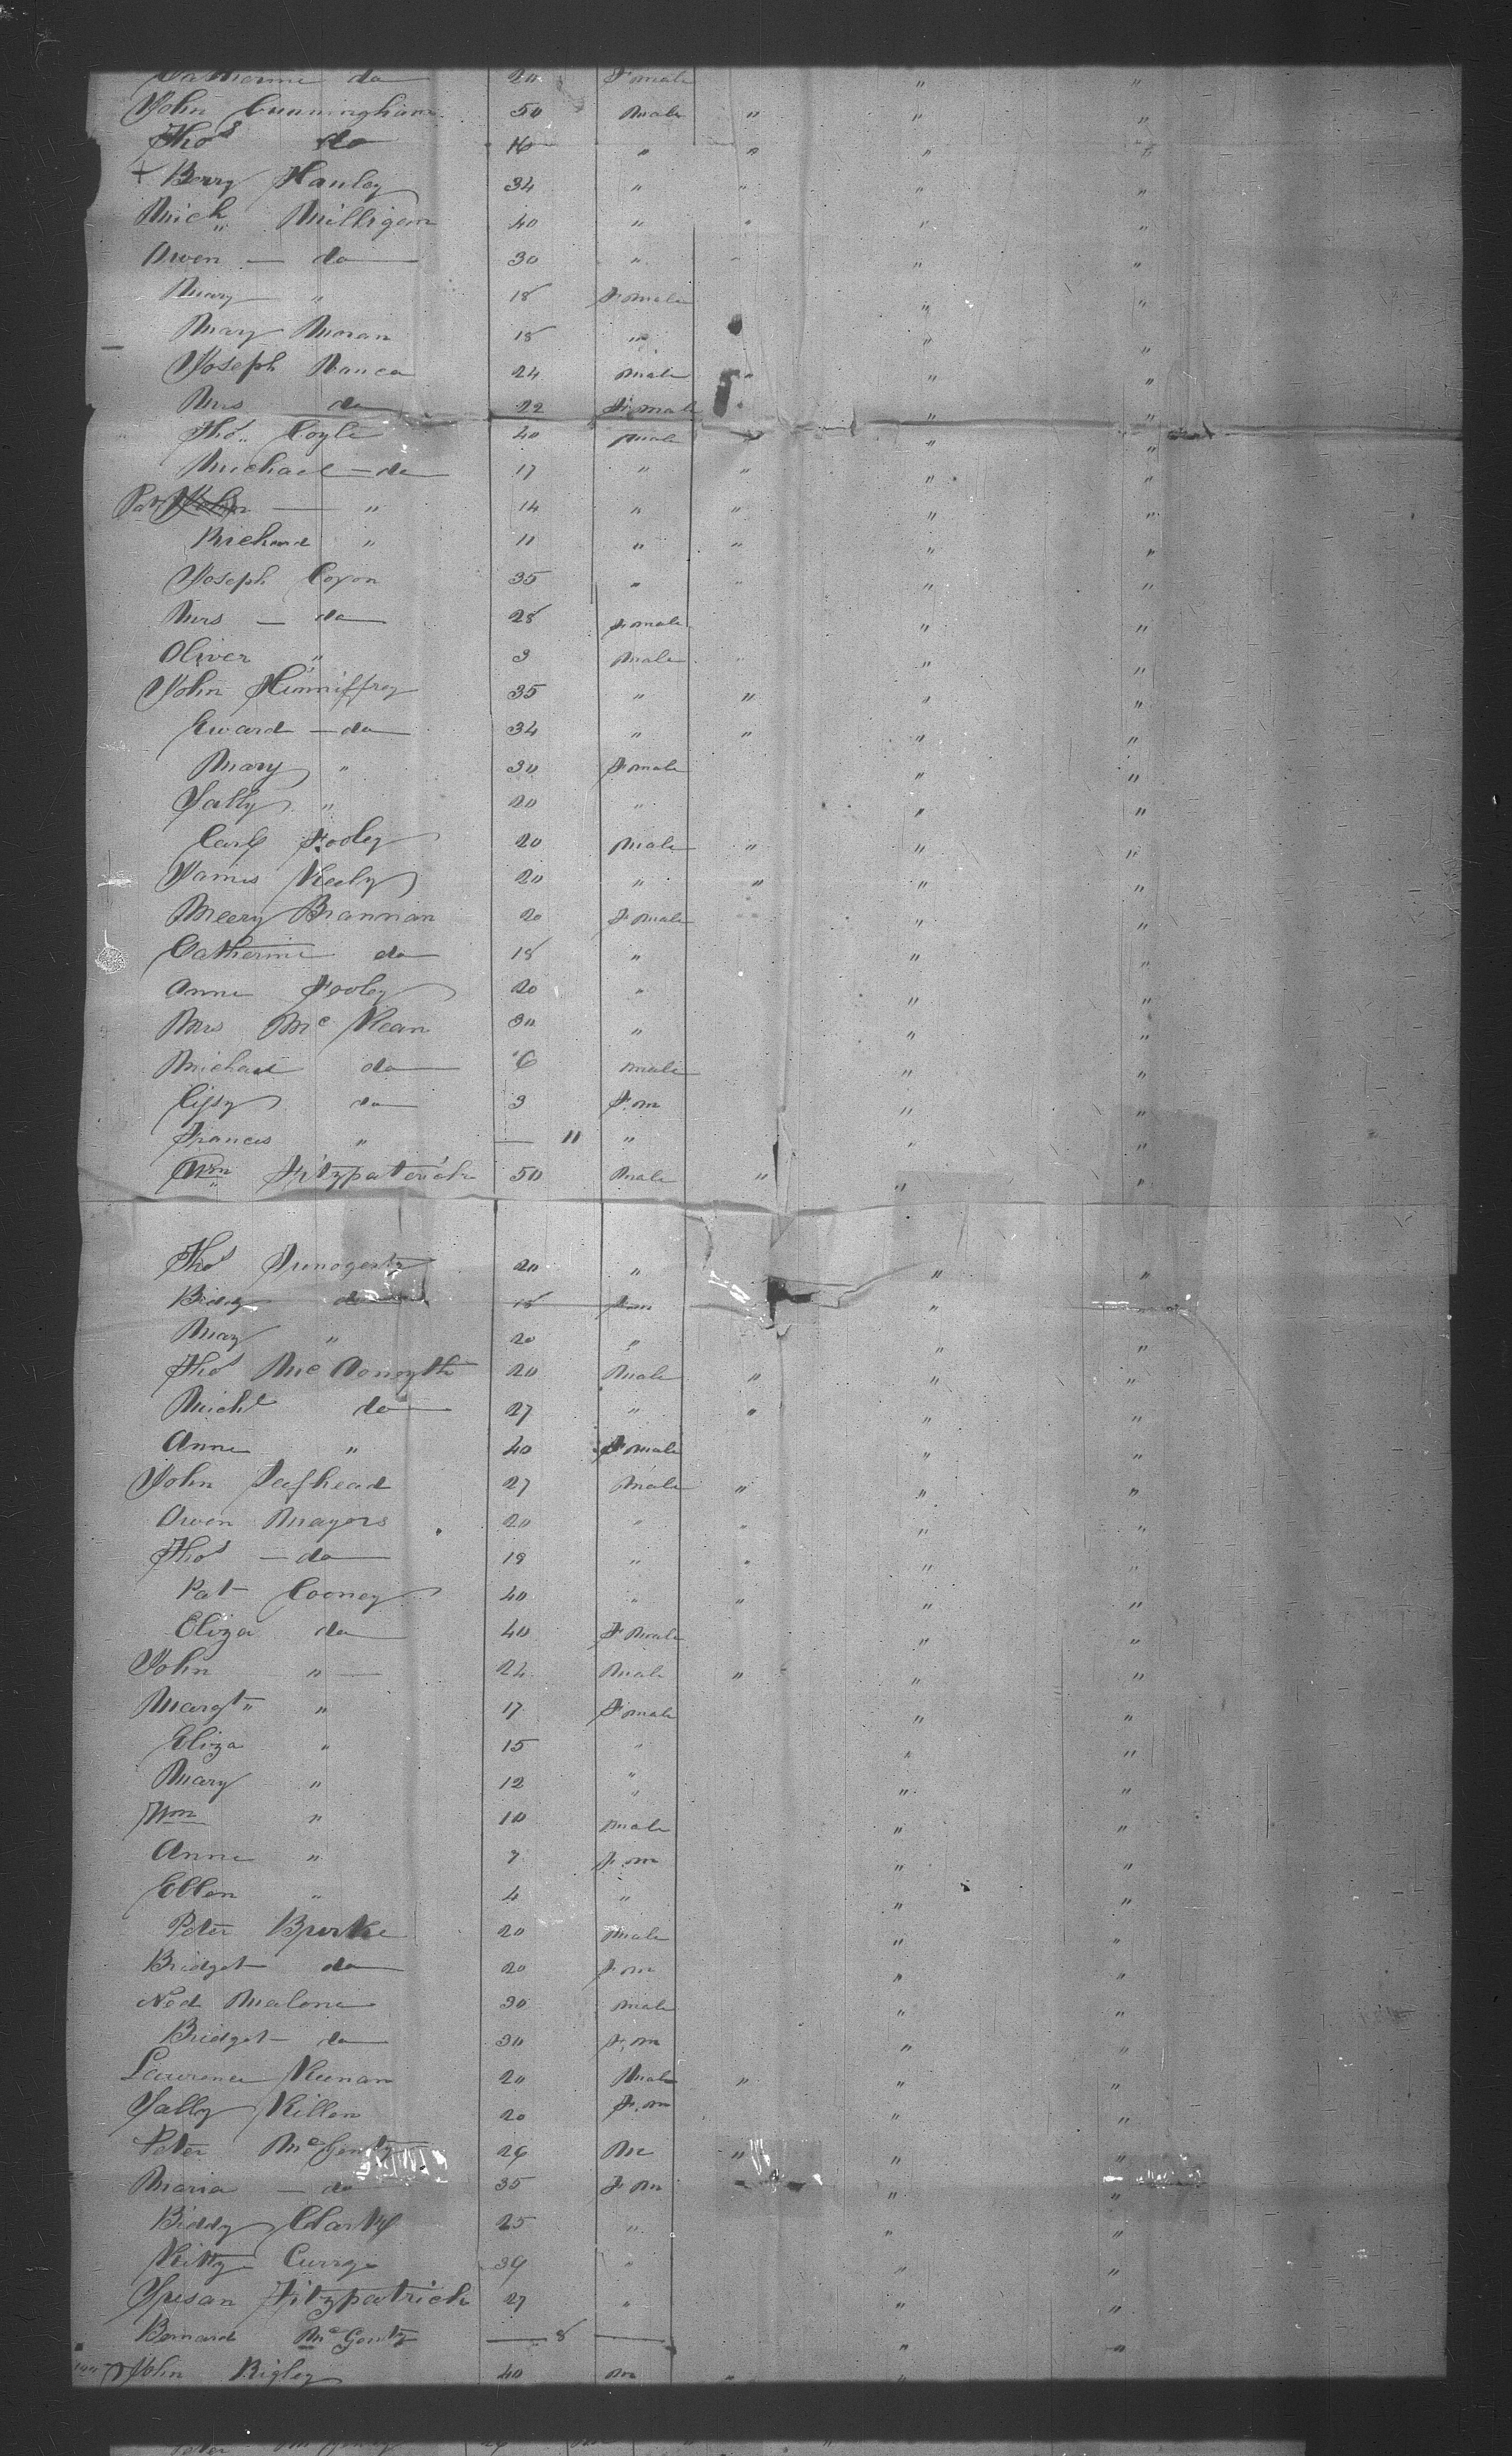 Catherine do 20 Female " "
John Cunningham 50 Male " " "
Thos do 16 " " " "
+ Berry Hanley 34 " " " "
Mich Milligan 40 " " " "
Owen — do 30 " " " "
Mary " 18 Female " "
Mary Moran 18 " " "
Joseph 24 Male " " "
Mrs do 22 Female " "
Thos Coyle 40 Male " "
Michael — do 17 " " " "
Pat — " 14 " " " "
Richard " 11 " " " "
Joseph 35 " " " "
Mrs — do 28 Female " "
Oliver " 3 Male " " "
John Hinniffrey 35 " " " "
Eward — do 34 " " " "
Mary " 30 Female " "
Sally " 20 " " "
Fooley 20 Male " " "
James Keely 20 " " " "
Meery Brannan 20 Female " "
Catherine do 18 " " "
Anne Fooley 20 " " "
Mrs Mc Kean 30 " " "
Michael do 6 male " "
do 3 F.m " "
Frances " — 11 " " "
Wm Fitzpatrick 50 Male " " "
Thos 20 " " "
Biddy do 18 F.m "
May " 20 " " "
Thos 20 Male " " "
Michl do 27 " " " "
Anne " 40 Female " "
John 27 Male " " "
Owen Mayers 20 " " " "
Thos — do 19 " " " "
Pat Cooney 40 " " " "
Eliza do 40 Female " "
John " — 24 Male " " "
Margt " 17 Female " "
Eliza " 15 " " "
Mary " 12 " " "
Wm " 10 male " "
Anne " 7 F.m " "
Ellen " 4 " " "
Peter Burke 20 Male " "
Bridget do 20 F.m " "
Ned Malone 30 male " "
Bridget do 30 F.m " "
Lawrence Keenan 20 Male " " "
Sally Killen 20 F.m " "
Peter McGenty 26 M " " "
Maria — do 35 F.m " "
Biddy Clarke 25 " " "
Kitty Curry 34 " " "
Susan Fitzpatrick 27 " " "
Bernard McGenty — 8 — " "
John Rigley 40 m " "